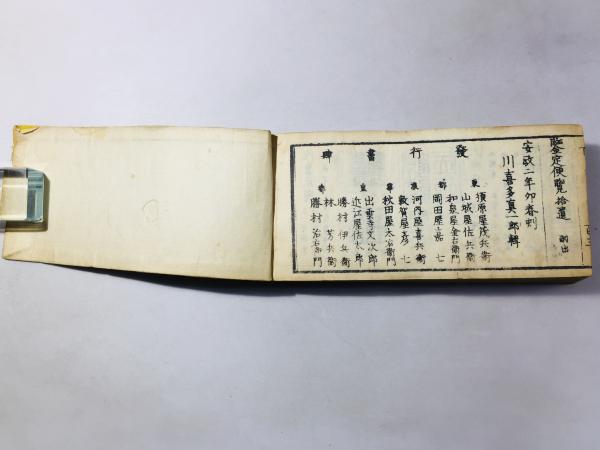 鑒定便覧拾遺 嗣出
安政二年卯春刻
川喜多真一郎輯
發行書肆
東都
須原屋茂兵衛
山城屋佐兵衛
和泉屋金右衛門
岡田屋嘉七
浪華
河内屋喜兵衛
敦賀屋彦七
秋田屋太右衛門
皇都
出雲寺文次郎
近江屋佐太郎
勝村伊兵衛
林芳兵衛
勝村治右衛門